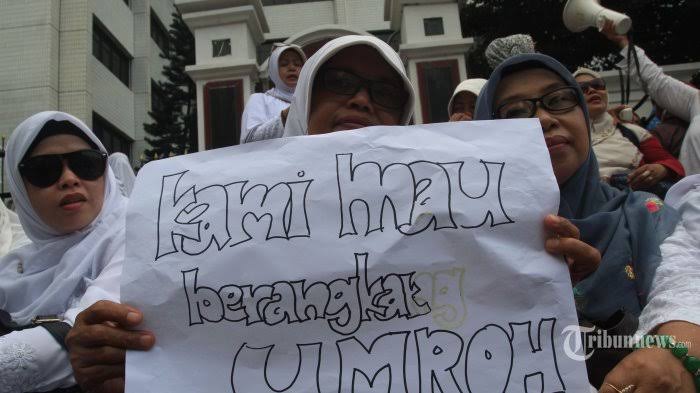 kami mau
berangkat
UMROH
Tribunnews.com